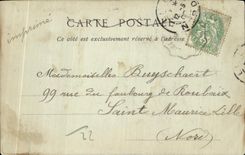 imprimé
CARTE POSTALE
Ce côté est exclusivement réservé à l'adresse
Mesdemoiselles Buyschaert
99 rue du faubourg de Roubaix
Saint Maurice Lille
(Nord)
22